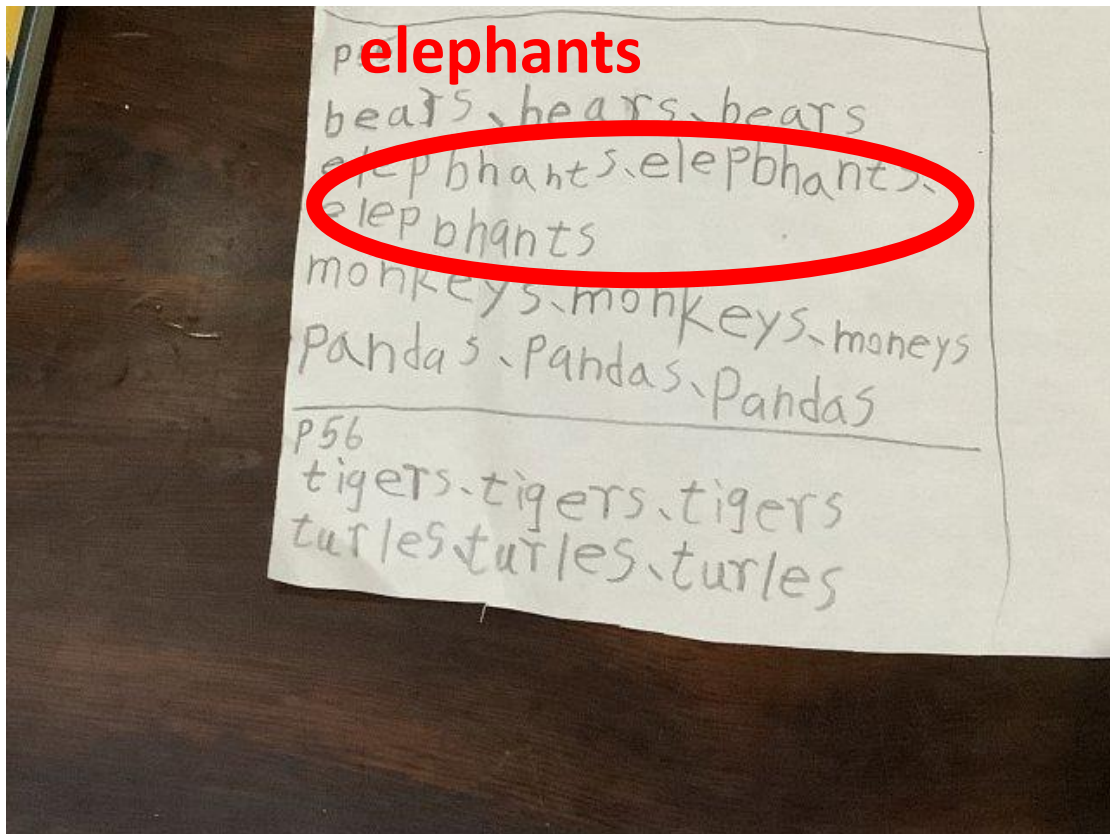 elephants
bears、bears、bears
elepbhants、elepbhants、
elepbhants
monkeys、monkeys、moneys
pandas、pandas、pandas
P56
tigers、tigers、tigers
turles、turles、turles